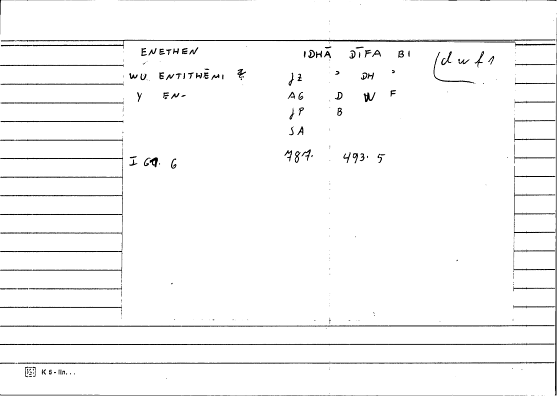 ENETHEN IDHĀ DĪFA BI dwf1
WU ENTITHĒMI Z JZ ʾ DH ʾ
Y EN- AG D W F
JP B
SA
I 69. 6 787. 493. 5
K 5 - lin...